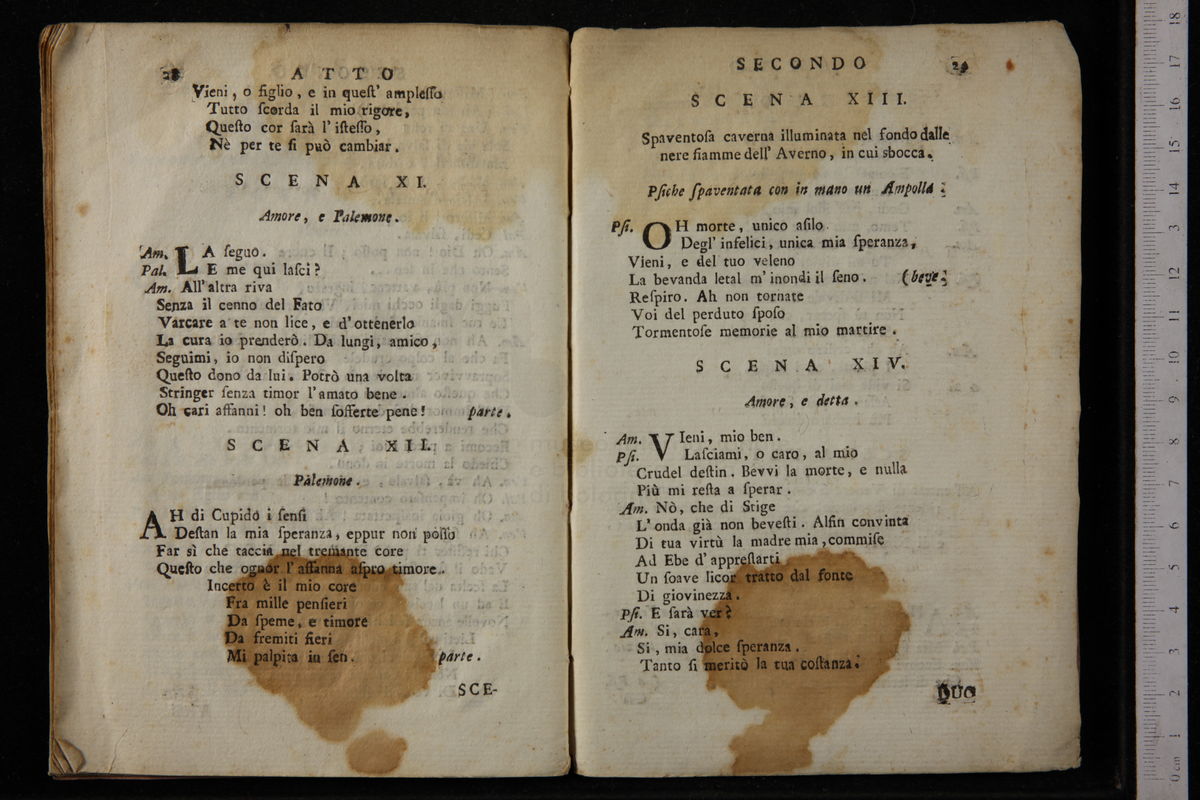 28
ATTO
Vieni, o figlio, e in queſt' ampleſſo
Tutto ſcorda il mio rigore,
Queſto cor ſarà l' iſteſſo,
Nè per te ſi può cambiar.
SCENA XI.
Amore, e Palemone.
Am. LA ſeguo.
Pal. E me qui laſci?
Am. All' altra riva
Senza il cenno del Fato
Varcare a te non lice, e d' ottenerlo
La cura io prenderò. Da lungi, amico,
Seguimi, io non diſpero
Queſto dono da lui. Potrò una volta
Stringer ſenza timor l' amato bene.
Oh cari affanni! oh ben ſofferte pene! parte.
SCENA XII.
Palemone.
AH di Cupido i ſenſi
Deſtan la mia ſperanza, eppur non poſſo
Far sì che taccia nel tremante core
Queſto che ognor l' affanna aſpro timore.
Incerto è il mio core
Fra mille penſieri
Da ſpeme, e timore
Da fremiti fieri
Mi palpita in ſen. parte.
SCE-
SECONDO
29
SCENA XIII.
Spaventoſa caverna illuminata nel fondo dalle
nere fiamme dell' Averno, in cui sbocca.
Pſiche ſpaventata con in mano un Ampolla.
Pſi. OH morte, unico aſilo
Degl' infelici, unica mia ſperanza,
Vieni, e del tuo veleno
La bevanda letal m' inondi il ſeno. (beve.
Reſpiro. Ah non tornate
Voi del perduto ſpoſo
Tormentoſe memorie al mio martire.
SCENA XIV.
Amore, e detta.
Am. VIeni, mio ben.
Pſi. Laſciami, o caro, al mio
Crudel deſtin. Bevvi la morte, e nulla
Più mi reſta a ſperar.
Am. Nò, che di Stige
L' onda già non beveſti. Alfin convinta
Di tua virtù la madre mia, commiſe
Ad Ebe d' appreſtarti
Un ſoave licor tratto dal fonte
Di giovinezza.
Pſi. E ſarà ver?
Am. Si, cara,
Si, mia dolce ſperanza.
Tanto ſi meritò la tua coſtanza.
DUO
0 cm 1 2 3 4 5 6 7 8 9 10 11 12 13 14 15 16 17 18